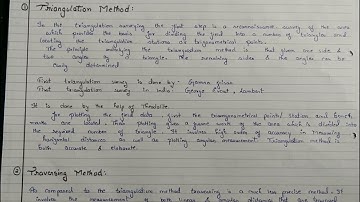 ① Triangulation Method:
In the triangulation surveying, the first step is a reconnaissance survey of the area
which provides the basis for dividing the field into a number of triangles and
locating the triangulation stations of trigonometrical points.
The principle underlying the triangulation method is that given one side &
two angles of triangle. The remaining sides & the angles can be
easily determined
First triangulation survey is done by - Gemma
First triangulation survey in India: George Everest, Lambart
It is done by the help of Theodolite.
For plotting the field data first the trigonometrical points/ station and bench
marks are located. Then plotting given a frame work of the area which is divided into
the required number of triangle. It involves high order of accuracy in measuring
horizontal distances as well as plotting angular measurement. Triangulation method is
both accurate & elaborate.
② Traversing Method:
As compared to the triangulation method traversing is a much less precise method. It
involves the measurement of both linear & angular distances that are